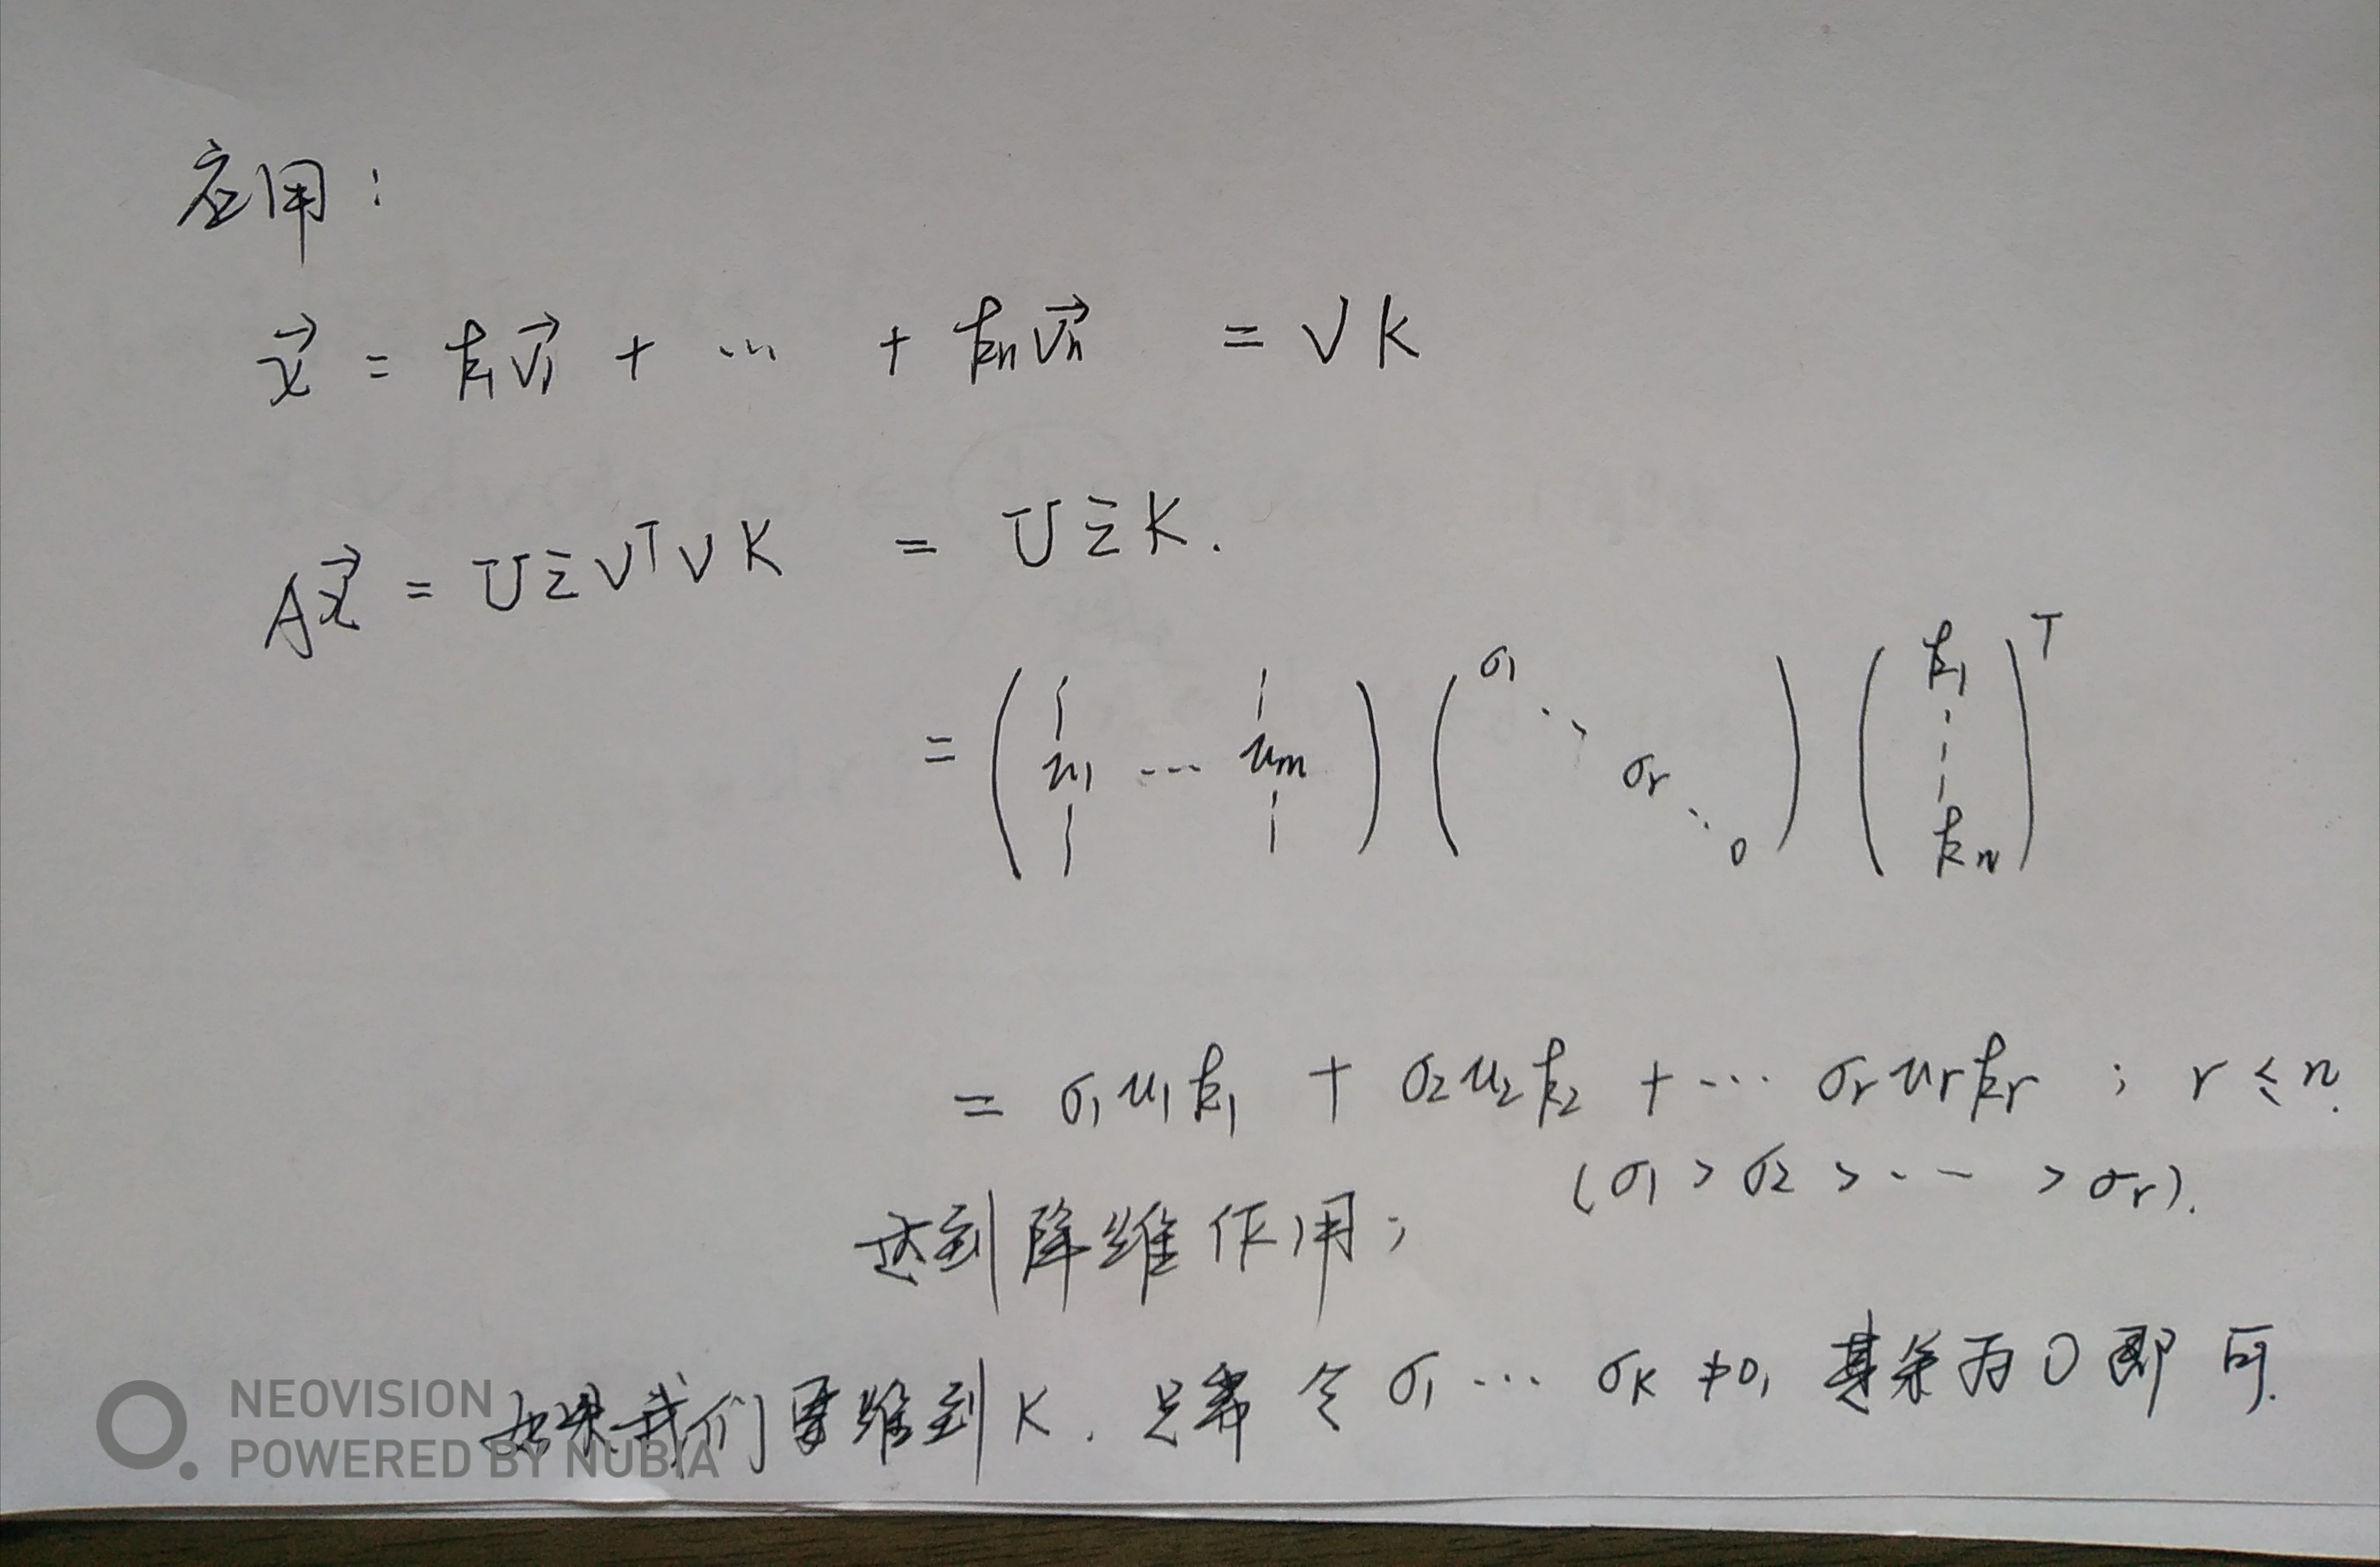 应用:
x⃗ = k₁v⃗₁ + ... + kₙv⃗ₙ = VK
Ax⃗ = UΣVᵀVK = UΣK.
= (u₁ ... uₘ) (σ₁ ⋱ σᵣ ⋱ 0) (k₁ ⋮ kₙ)ᵀ
= σ₁u₁k₁ + σ₂u₂k₂ + ... σᵣuᵣkᵣ ; r ≤ n.
(σ₁ > σ₂ > ... > σᵣ).
达到降维作用;
如果我们要维到K. 只需令σ₁ ... σK ≠0, 其余为0即可.
NEOVISION
POWERED BY NUBIA